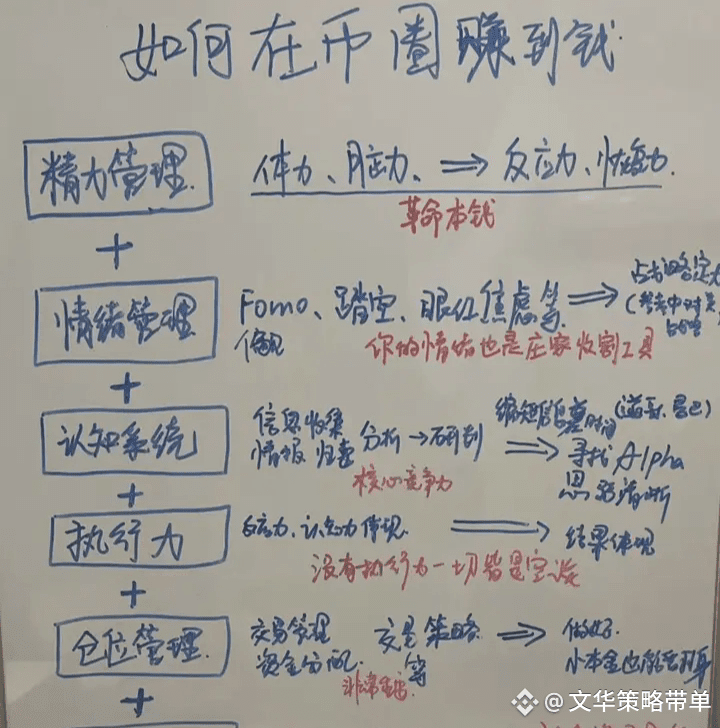 如何在币圈赚到钱
精力管理 体力、脑力、⇒ 反应力、恢复力.
革命本钱
+
情绪管理 Fomo、踏空、眼红焦虑等 ⇒
偏见 你的情绪也是庄家收割工具
+
认知系统 信息收集 分析→研判 ⇒ 寻找Alpha
情报 归纳 思路清晰
核心竞争力
+
执行力 反应力、认知力体现. ⇒ 结果体现
没有执行力一切皆是空谈
+
仓位管理. 交易管理 交易策略 ⇒ 做好
资金分配. 等 小本金也能
非常重要.
+
@文华策略带单